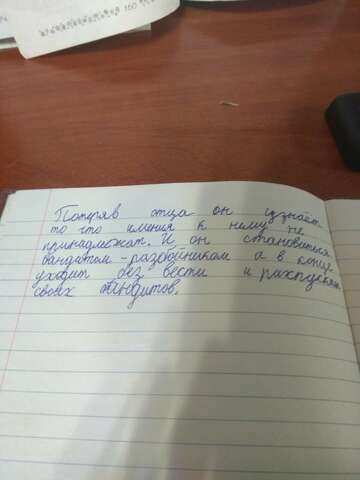 160
Потеряв отца он узнаёт
то что имения к нему не
принадлежат. И он становиться
бандитом-разбойником а в конце
уходит без вести и распускает
своих бандитов.